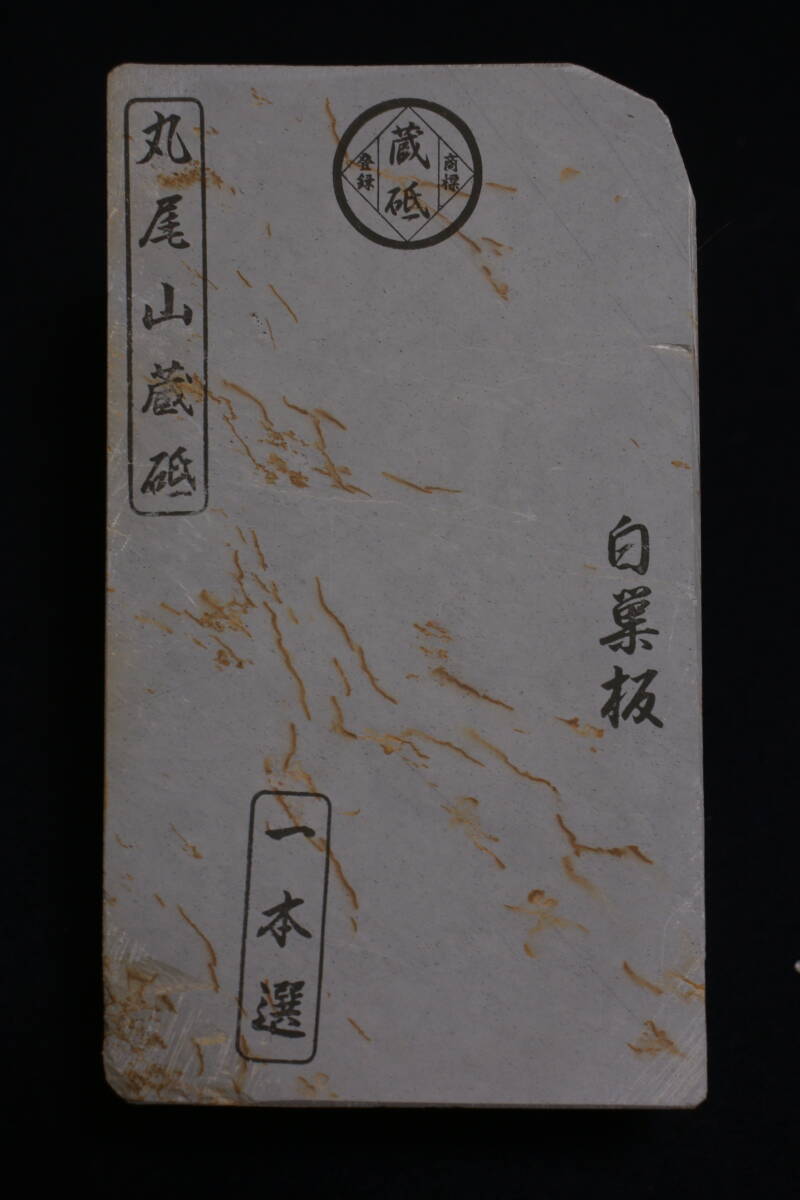 丸尾山蔵砥
蔵砥
登録
商標
白巣板
一本選